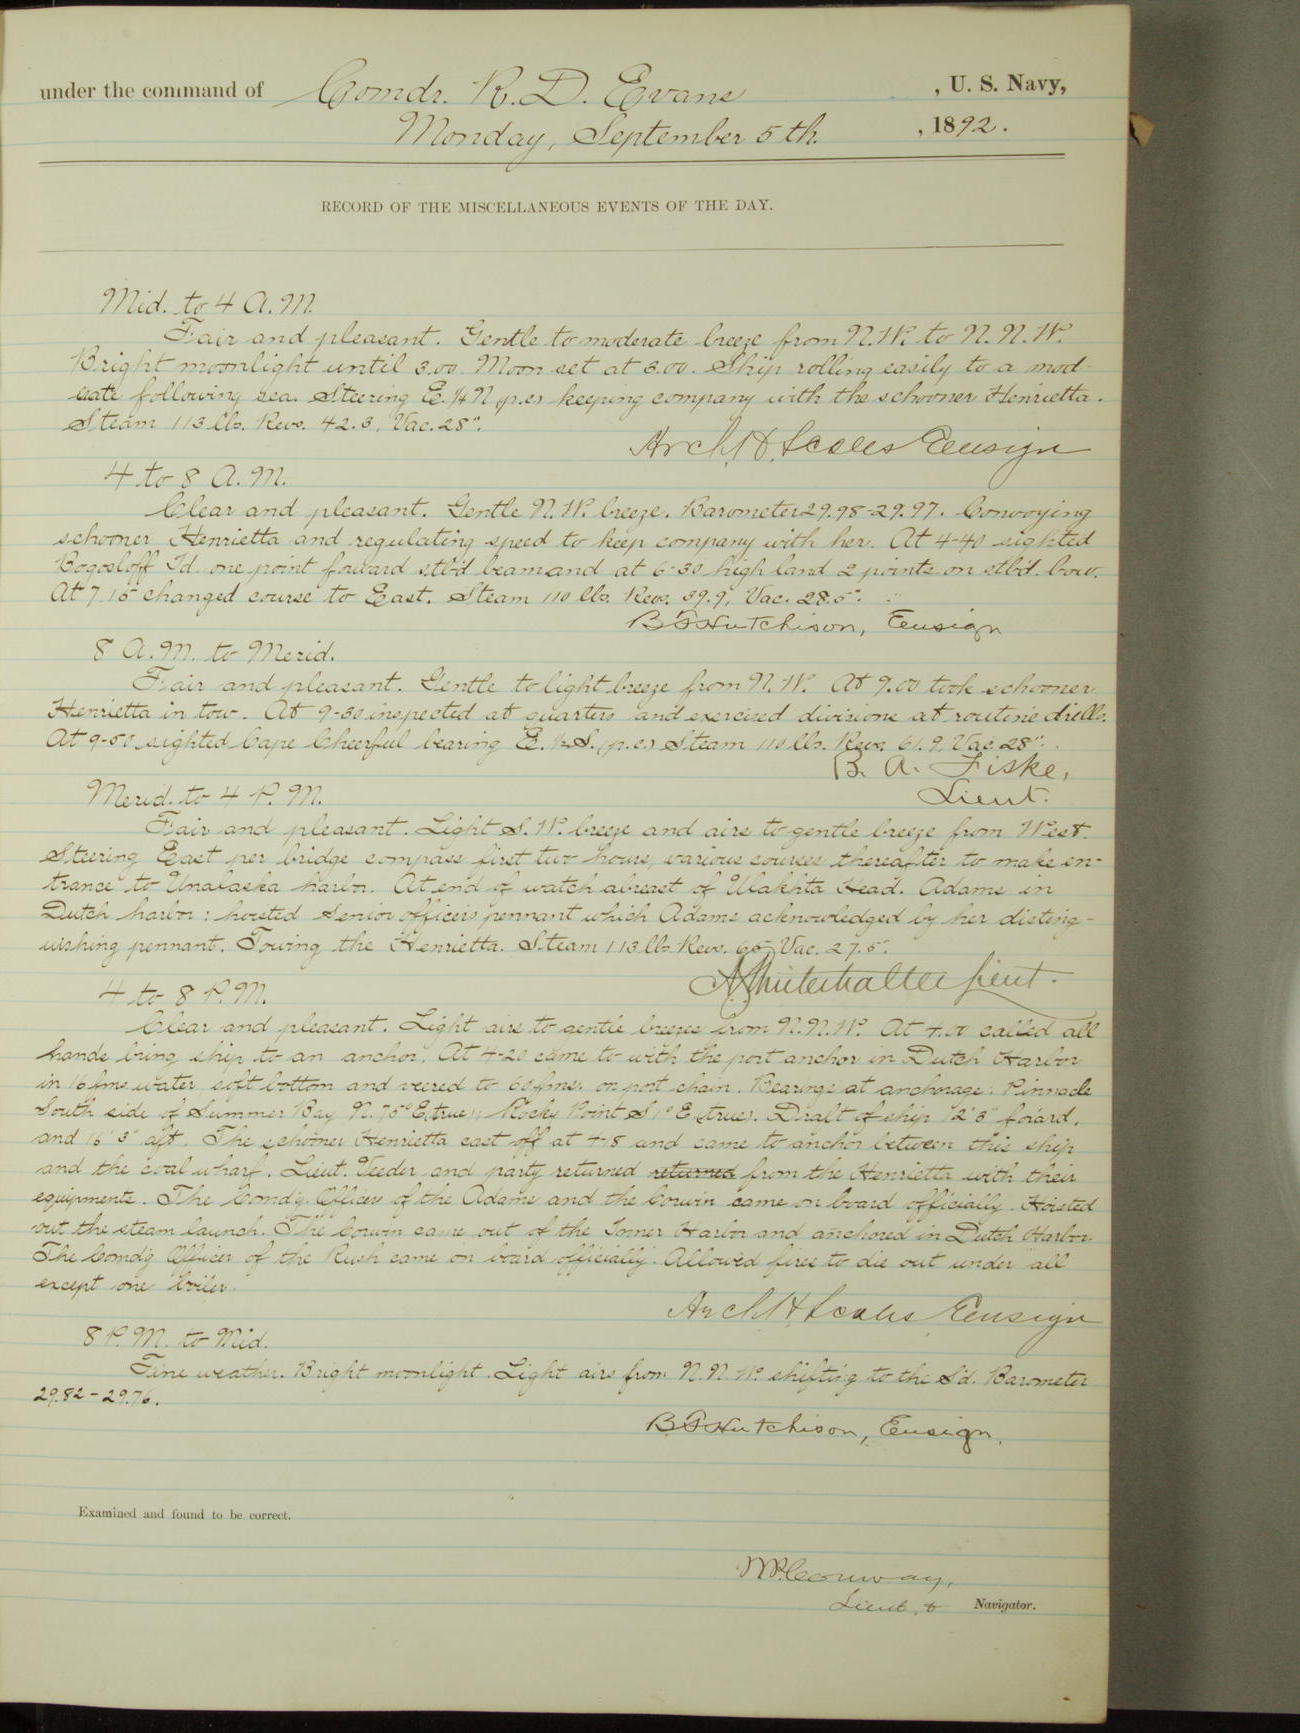 under the command of Comdr. R. D. Evans , U. S. Navy,
Monday, September 5th. , 1892.
RECORD OF THE MISCELLANEOUS EVENTS OF THE DAY.
Mid. to 4 A.M.
Fair and pleasant. Gentle to moderate breeze from N.W. to N.N.W.
Bright moonlight until 3.00. Moon set at 3.00. Ship rolling easily to a mod-
erate following sea. Steering E.¼N (p.c.) keeping company with the schooner Henrietta.
Steam 113 lbs. Revs. 42.3, Vac. 28".
Arch. H. Scales Ensign
4 to 8 A.M.
Clear and pleasant. Gentle N.W. breeze. Barometer 29.98-29.97. Convoying
schooner Henrietta and regulating speed to keep company with her. At 4-40 sighted
Bogosloff Id. one point forward stb'd beam and at 6-30 high land 2 points on stb'd. bow.
At 7.15 changed course to East. Steam 110 lbs. Revs. 39.9, Vac. 28.5".
B F Hutchison, Ensign
8 A.M. to Merid.
Fair and pleasant. Gentle to light breeze from N.W. At 9.00 took schooner
Henrietta in tow. At 9-30 inspected at quarters and exercised divisions at routine drills.
At 9-50 sighted Cape Cheerful bearing E.½S. (p.c.) Steam 110 lbs. Revs. 61.9, Vac. 28".
B. A. Fiske,
Lieut.
Merid. to 4 P.M.
Fair and pleasant. Light S.W. breeze and airs to gentle breeze from West.
Steering East per bridge compass first two hours, various courses thereafter to make en-
trance to Unalaska harbor. At end of watch abreast of Ulakhta Head. Adams in
Dutch harbor: hoisted senior officers pennant which Adams acknowledged by her disting-
uishing pennant. Towing the Henrietta. Steam 113 lbs Revs. 65 Vac. 27.5".
A G Winterhalter Lieut.
4 to 8 P.M.
Clear and pleasant. Light airs to gentle breezes from N.N.W. At 4.00 called all
hands bring ship to an anchor. At 4-20 came to with the port anchor in Dutch Harbor
in 16 fms water, soft bottom and veered to 60 fms. on port chain. Bearings at anchorage: Pinnacle
South side of Summer Bay N.75° E.(true); Rocky Point S 1° E (true). Draft of ship 12' 3" for'ard,
and 16' 3" aft. The schooner Henrietta cast off at 4-18 and came to anchor between this ship
and the coal wharf. Lieut. Veeder and party returned returned from the Henrietta with their
equipments. The Comdg. Officers of the Adams and the Corwin came on board officially. Hoisted
out the steam launch. The Corwin came out of the Inner Harbor and anchored in Dutch Harbor.
The Comd'g Officer of the Rush came on board officially. Allowed fires to die out under all
except one boiler.
Arch H Scales, Ensign
8 P.M. to Mid.
Fine weather. Bright moonlight. Light airs from N.N.W. shifting to the S'd. Barometer
29.82-29.76.
B F Hutchison, Ensign.
Examined and found to be correct.
W P. Conway,
Lieut. & Navigator.